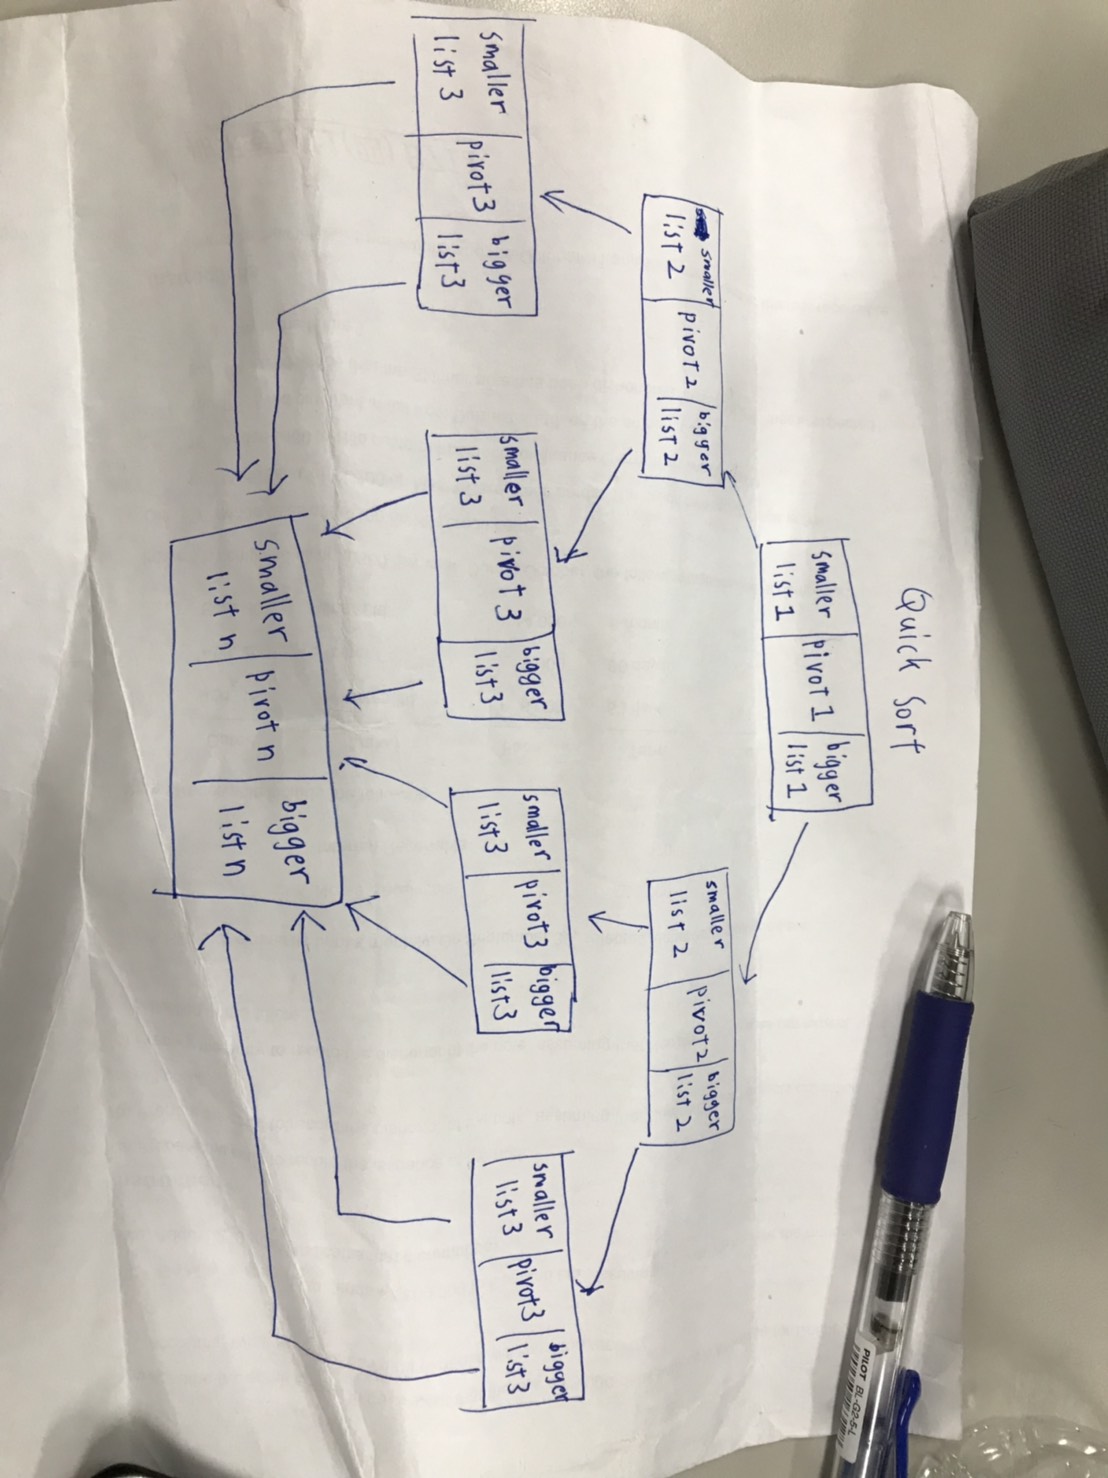 Quick Sort
smaller
list 1
pivot 1
bigger
list 1
smaller
list 2
pivot 2
bigger
list 2
smaller
list 2
pivot 2
bigger
list 2
smaller
list 3
pivot 3
bigger
list 3
smaller
list 3
pivot 3
bigger
list 3
smaller
list 3
pivot 3
bigger
list 3
smaller
list 3
pivot 3
bigger
list 3
smaller
list n
pivot n
bigger
list n
PILOT BL-G2-5-L